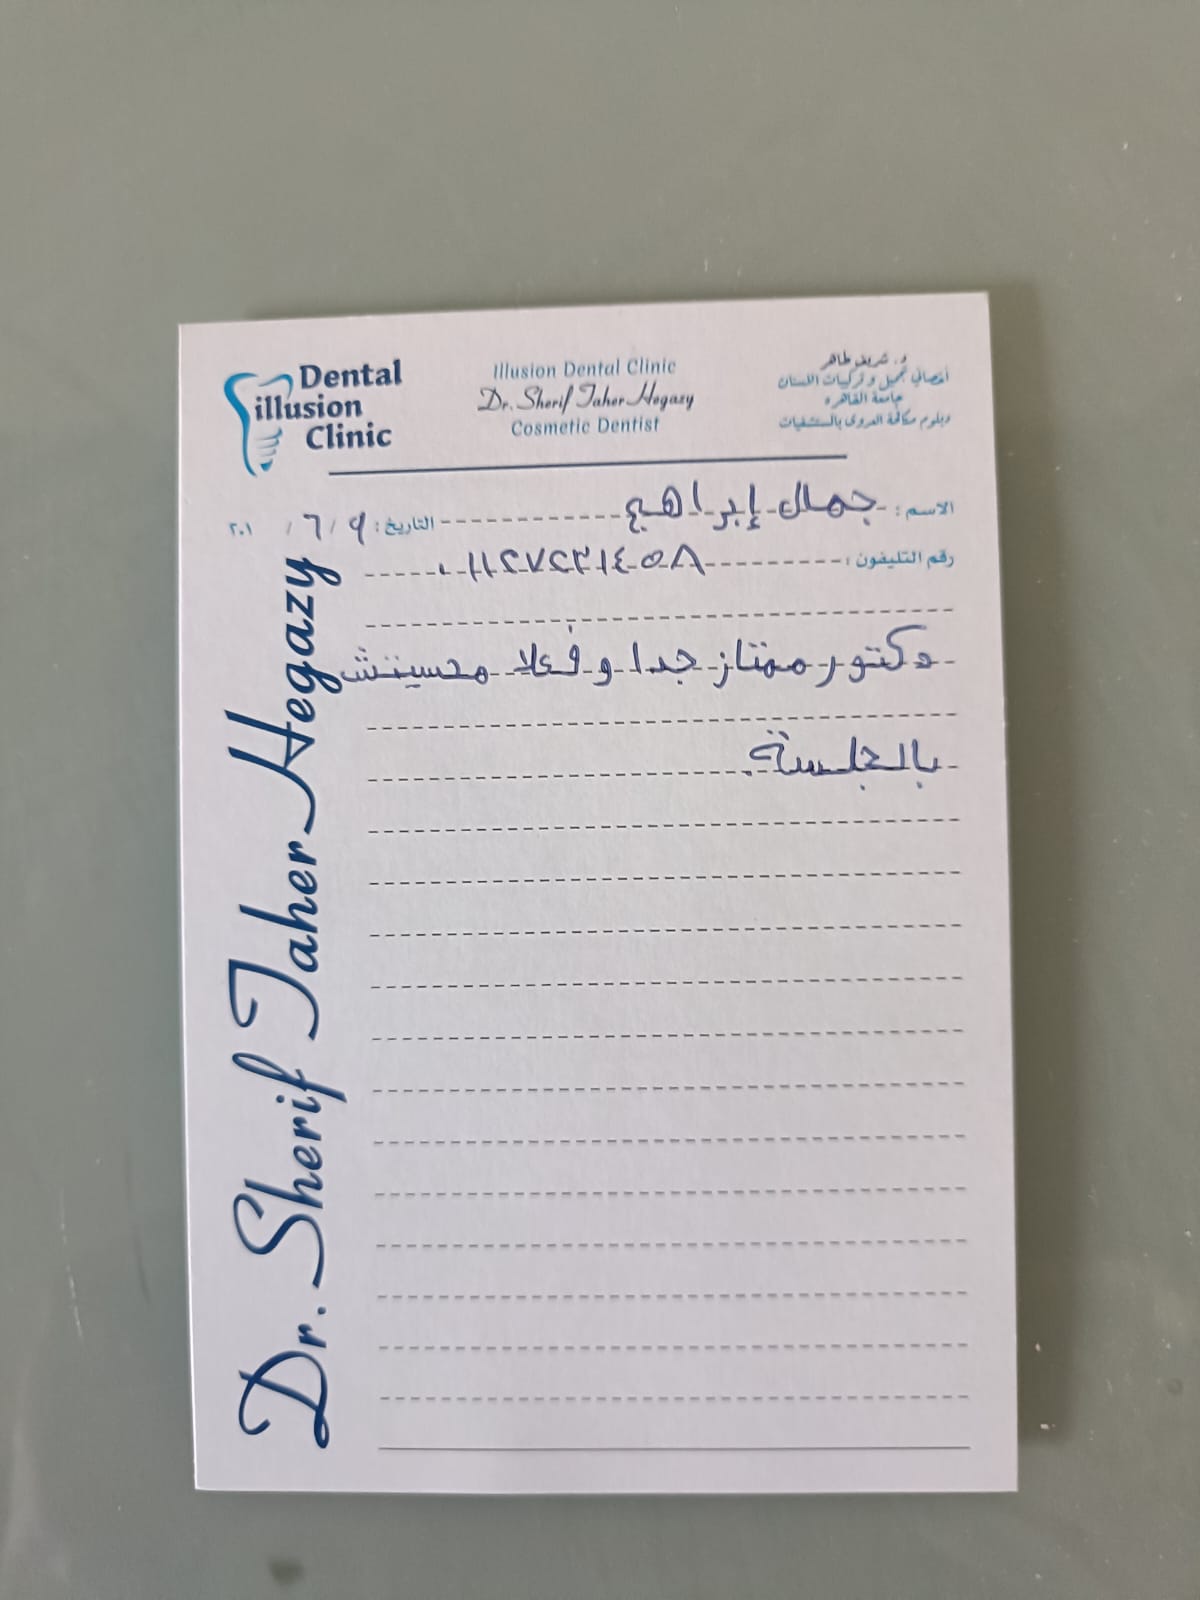 Dental
illusion
Clinic
Illusion Dental Clinic
Dr. Sherif Taher Hegazy
Cosmetic Dentist
د. شريف طاهر
أخصائي تجميل و تركيبات اللسنان
جامعة القاهره
دبلوم مكافحة العدوى بالمستشفيات
الاسم : جمال إبراهيم
التاريخ : ٩ / ٦ / ٢٠١
رقم التليفون :
دكتور ممتاز جدا و فعلا محسيتش
بالجلسة.
Dr. Sherif Taher Hegazy